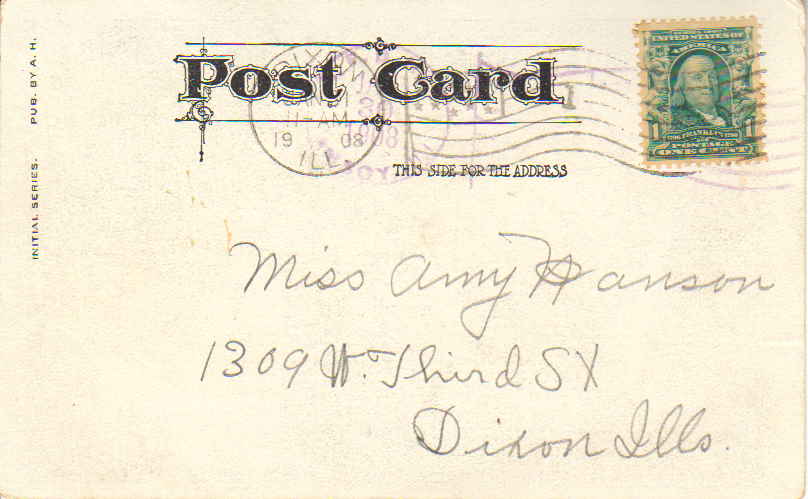 Post Card
THIS SIDE FOR THE ADDRESS
UNITED STATES OF
AMERICA
1706 FRANKLIN 1790
POSTAGE
1 ONE CENT
11-AM
19 08
ILL.
1908
Miss Amy Hanson
1309 W. Third St
Dixon Ills.
INITIAL SERIES. PUB. BY A. H.